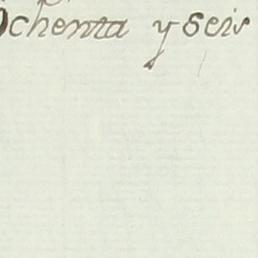 Ochenta y Seis